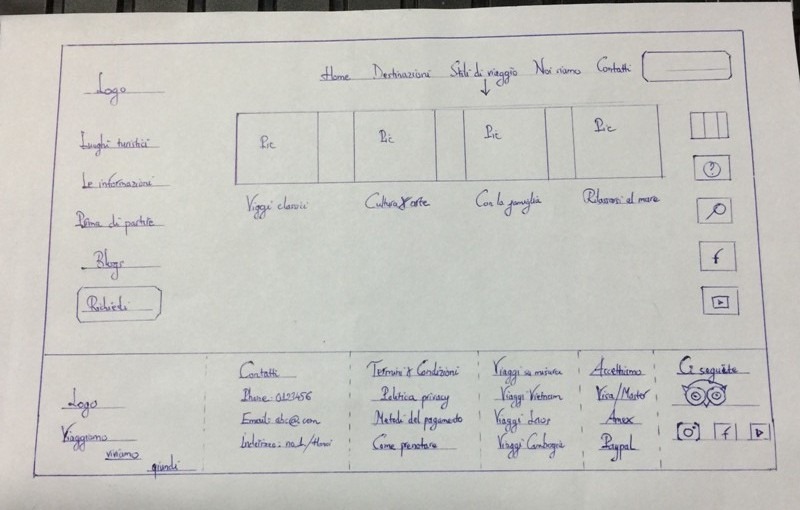 Logo
Home Destinazioni Stili di viaggio Noi siamo Contatti
Luoghi turistici
Le informazioni
Prima di partire
Blogs
Richiedi
Pic Pic Pic Pic
Viggi classici Cultura & arte Con la famiglia Rilassarsi al mare
?
f
Logo
Viaggiamo
viviamo
quindi
Contatti
Phone: 0123456
Email: abc@com
Indirizzo: no.1/Hanoi
Termini & Condizioni
Politica privacy
Metodi del pagamento
Come prenotare
Viaggi su misura
Viaggi Vietnam
Viaggi Laos
Viaggi Cambogia
Accettiamo
Visa/Master
Amex
Paypal
Ci seguite
f